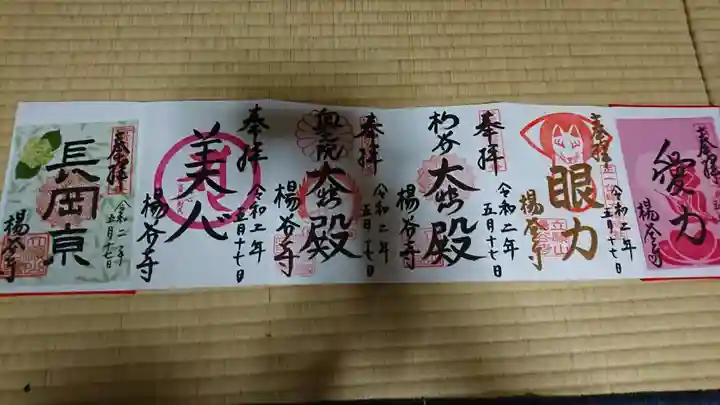 奉拝
愛力
楊谷寺
奉拝
眼力
令和二年
五月十七日
楊谷寺
奉拝
大悲殿
令和二年
五月十七日
楊谷寺
奉拝
奥之院
大悲殿
令和二年
五月十七日
楊谷寺
奉拝
美心
令和二年
五月十七日
楊谷寺
奉拝
長岡京
令和二年
五月十七日
楊谷寺